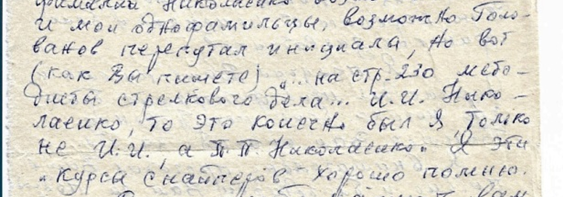 фамилия Николаенко
и мои однофамильцы, возможно Голо-
ванов перепутал инициала, но вот
(как Вы пишете) „... на стр. 230 мето-
дисты стрелкового дела... И.И. Нико-
лаенко, то это конечно был Я, только
не И.И., а П.П. Николаенко. Я эти
"Курсы снайперов" хорошо помню.